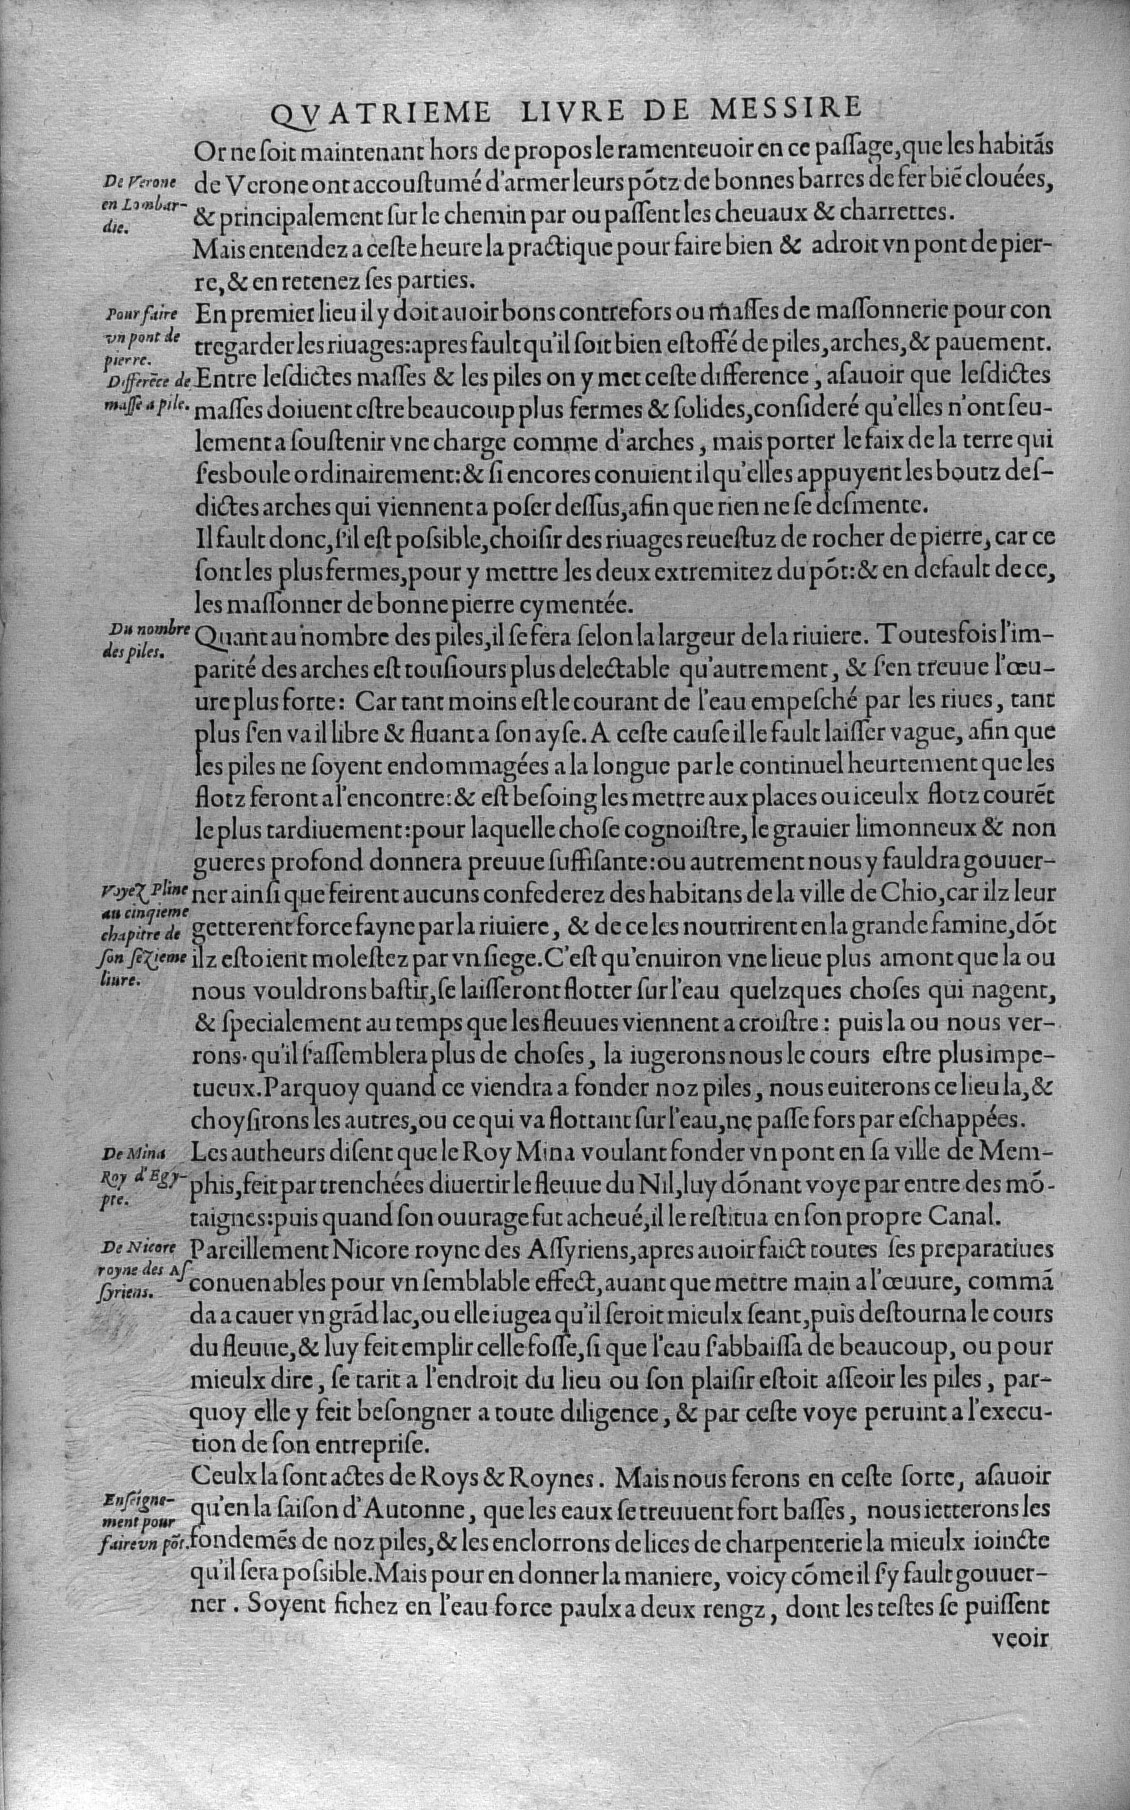 QVATRIEME LIVRE DE MESSIRE
Or ne ſoit maintenant hors de propos le ramenteuoir en ce paſſage, que les habitãs
De Verone
en Lombar-
die.
de Verone ont accouſtumé d'armer leurs põtz de bonnes barres de fer biẽ clouées,
& principalement ſur le chemin par ou paſſent les cheuaux & charrettes.
Mais entendez a ceſte heure la practique pour faire bien & adroit vn pont de pier-
re, & en retenez ſes parties.
Pour faire
vn pont de
pierre.
En premier lieu il y doit auoir bons contrefors ou maſſes de maſſonnerie pour con
tregarder les riuages: apres fault qu'il ſoit bien eſtoffé de piles, arches, & pauement.
Differẽce de
maſſe a pile.
Entre leſdictes maſſes & les piles on y met ceſte difference, aſauoir que leſdictes
maſſes doiuent eſtre beaucoup plus fermes & ſolides, conſideré qu'elles n'ont ſeu-
lement a ſouſtenir vne charge comme d'arches, mais porter le faix de la terre qui
ſ'eſboule ordinairement: & ſi encores conuient il qu'elles appuyent les boutz deſ-
dictes arches qui viennent a poſer deſſus, afin que rien ne ſe deſmente.
Il fault donc, ſ'il eſt poſsible, choiſir des riuages reueſtuz de rocher de pierre, car ce
ſont les plus fermes, pour y mettre les deux extremitez du põt: & en default de ce,
les maſſonner de bonne pierre cymentée.
Du nombre
des piles.
Quant au nombre des piles, il ſe fera ſelon la largeur de la riuiere. Toutesfois l'im-
parité des arches eſt touſiours plus delectable qu'autrement, & ſ'en treuue l'œu-
ure plus forte: Car tant moins eſt le courant de l'eau empeſché par les riues, tant
plus ſ'en va il libre & fluant a ſon ayſe. A ceſte cauſe il le fault laiſſer vague, afin que
les piles ne ſoyent endommagées a la longue par le continuel heurtement que les
flotz feront a l'encontre: & eſt beſoing les mettre aux places ou iceulx flotz courẽt
le plus tardiuement: pour laquelle choſe cognoiſtre, le grauier limonneux & non
gueres profond donnera preuue ſuffiſante: ou autrement nous y fauldra gouuer-
Voyez Pline
au cinqieme
chapitre de
ſon ſezieme
liure.
ner ainſi que feirent aucuns confederez des habitans de la ville de Chio, car ilz leur
getterent force fayne par la riuiere, & de ce les nourrirent en la grande famine, dõt
ilz eſtoient moleſtez par vn ſiege. C'eſt qu'enuiron vne lieue plus amont que la ou
nous vouldrons baſtir, ſe laiſſeront flotter ſur l'eau quelzques choſes qui nagent,
& ſpecialement au temps que les fleuues viennent a croiſtre: puis la ou nous ver-
rons qu'il ſ'aſſemblera plus de choſes, la iugerons nous le cours eſtre plus impe-
tueux. Parquoy quand ce viendra a fonder noz piles, nous euiterons ce lieu la, &
choyſirons les autres, ou ce qui va flottant ſur l'eau, ne paſſe fors par eſchappées.
De Mina
Roy d'Egy-
pte.
Les autheurs diſent que le Roy Mina voulant fonder vn pont en ſa ville de Mem-
phis, feit par trenchées diuertir le fleuue du Nil, luy dõnant voye par entre des mõ-
taignes: puis quand ſon ouurage fut acheué, il le reſtitua en ſon propre Canal.
De Nicore
royne des Aſ
ſyriens.
Pareillement Nicore royne des Aſſyriens, apres auoir faict toutes ſes preparatiues
conuenables pour vn ſemblable effect, auant que mettre main a l'œuure, commã
da a cauer vn grãd lac, ou elle iugea qu'il ſeroit mieulx ſeant, puis deſtourna le cours
du fleuue, & luy feit emplir celle foſſe, ſi que l'eau ſ'abbaiſſa de beaucoup, ou pour
mieulx dire, ſe tarit a l'endroit du lieu ou ſon plaiſir eſtoit aſſeoir les piles, par-
quoy elle y feit beſongner a toute diligence, & par ceſte voye peruint a l'execu-
tion de ſon entrepriſe.
Ceulx la ſont actes de Roys & Roynes. Mais nous ferons en ceſte ſorte, aſauoir
Enſeigne-
ment pour
faire vn põt.
qu'en la ſaiſon d'Autonne, que les eaux ſe treuuent fort baſſes, nous ietterons les
fondemẽs de noz piles, & les enclorrons de lices de charpenterie la mieulx ioincte
qu'il ſera poſsible. Mais pour en donner la maniere, voicy cõme il ſ'y fault gouuer-
ner. Soyent fichez en l'eau force paulx a deux rengz, dont les teſtes ſe puiſſent
veoir